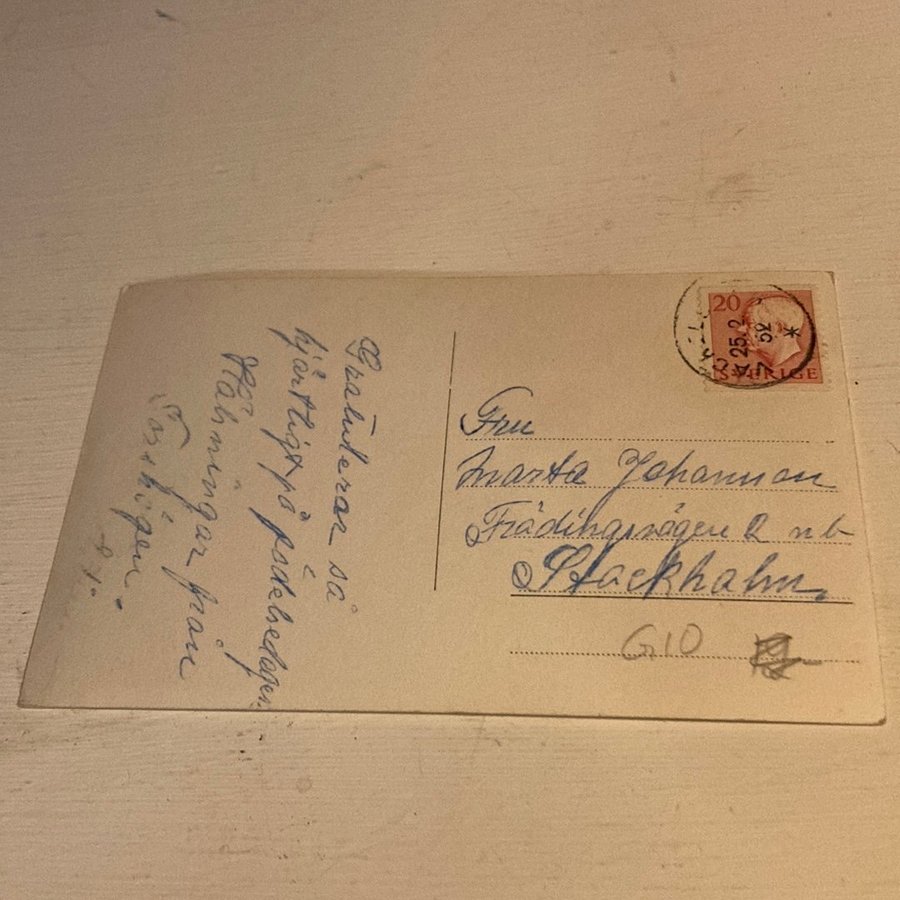 Gratulerar så
hjärtligt på födelsedagen.
Hälsningar från
20
25.2
52
SVERIGE
Fru
Marta Johansson
Frödingsvägen 2 nb
Stockholm.
G10